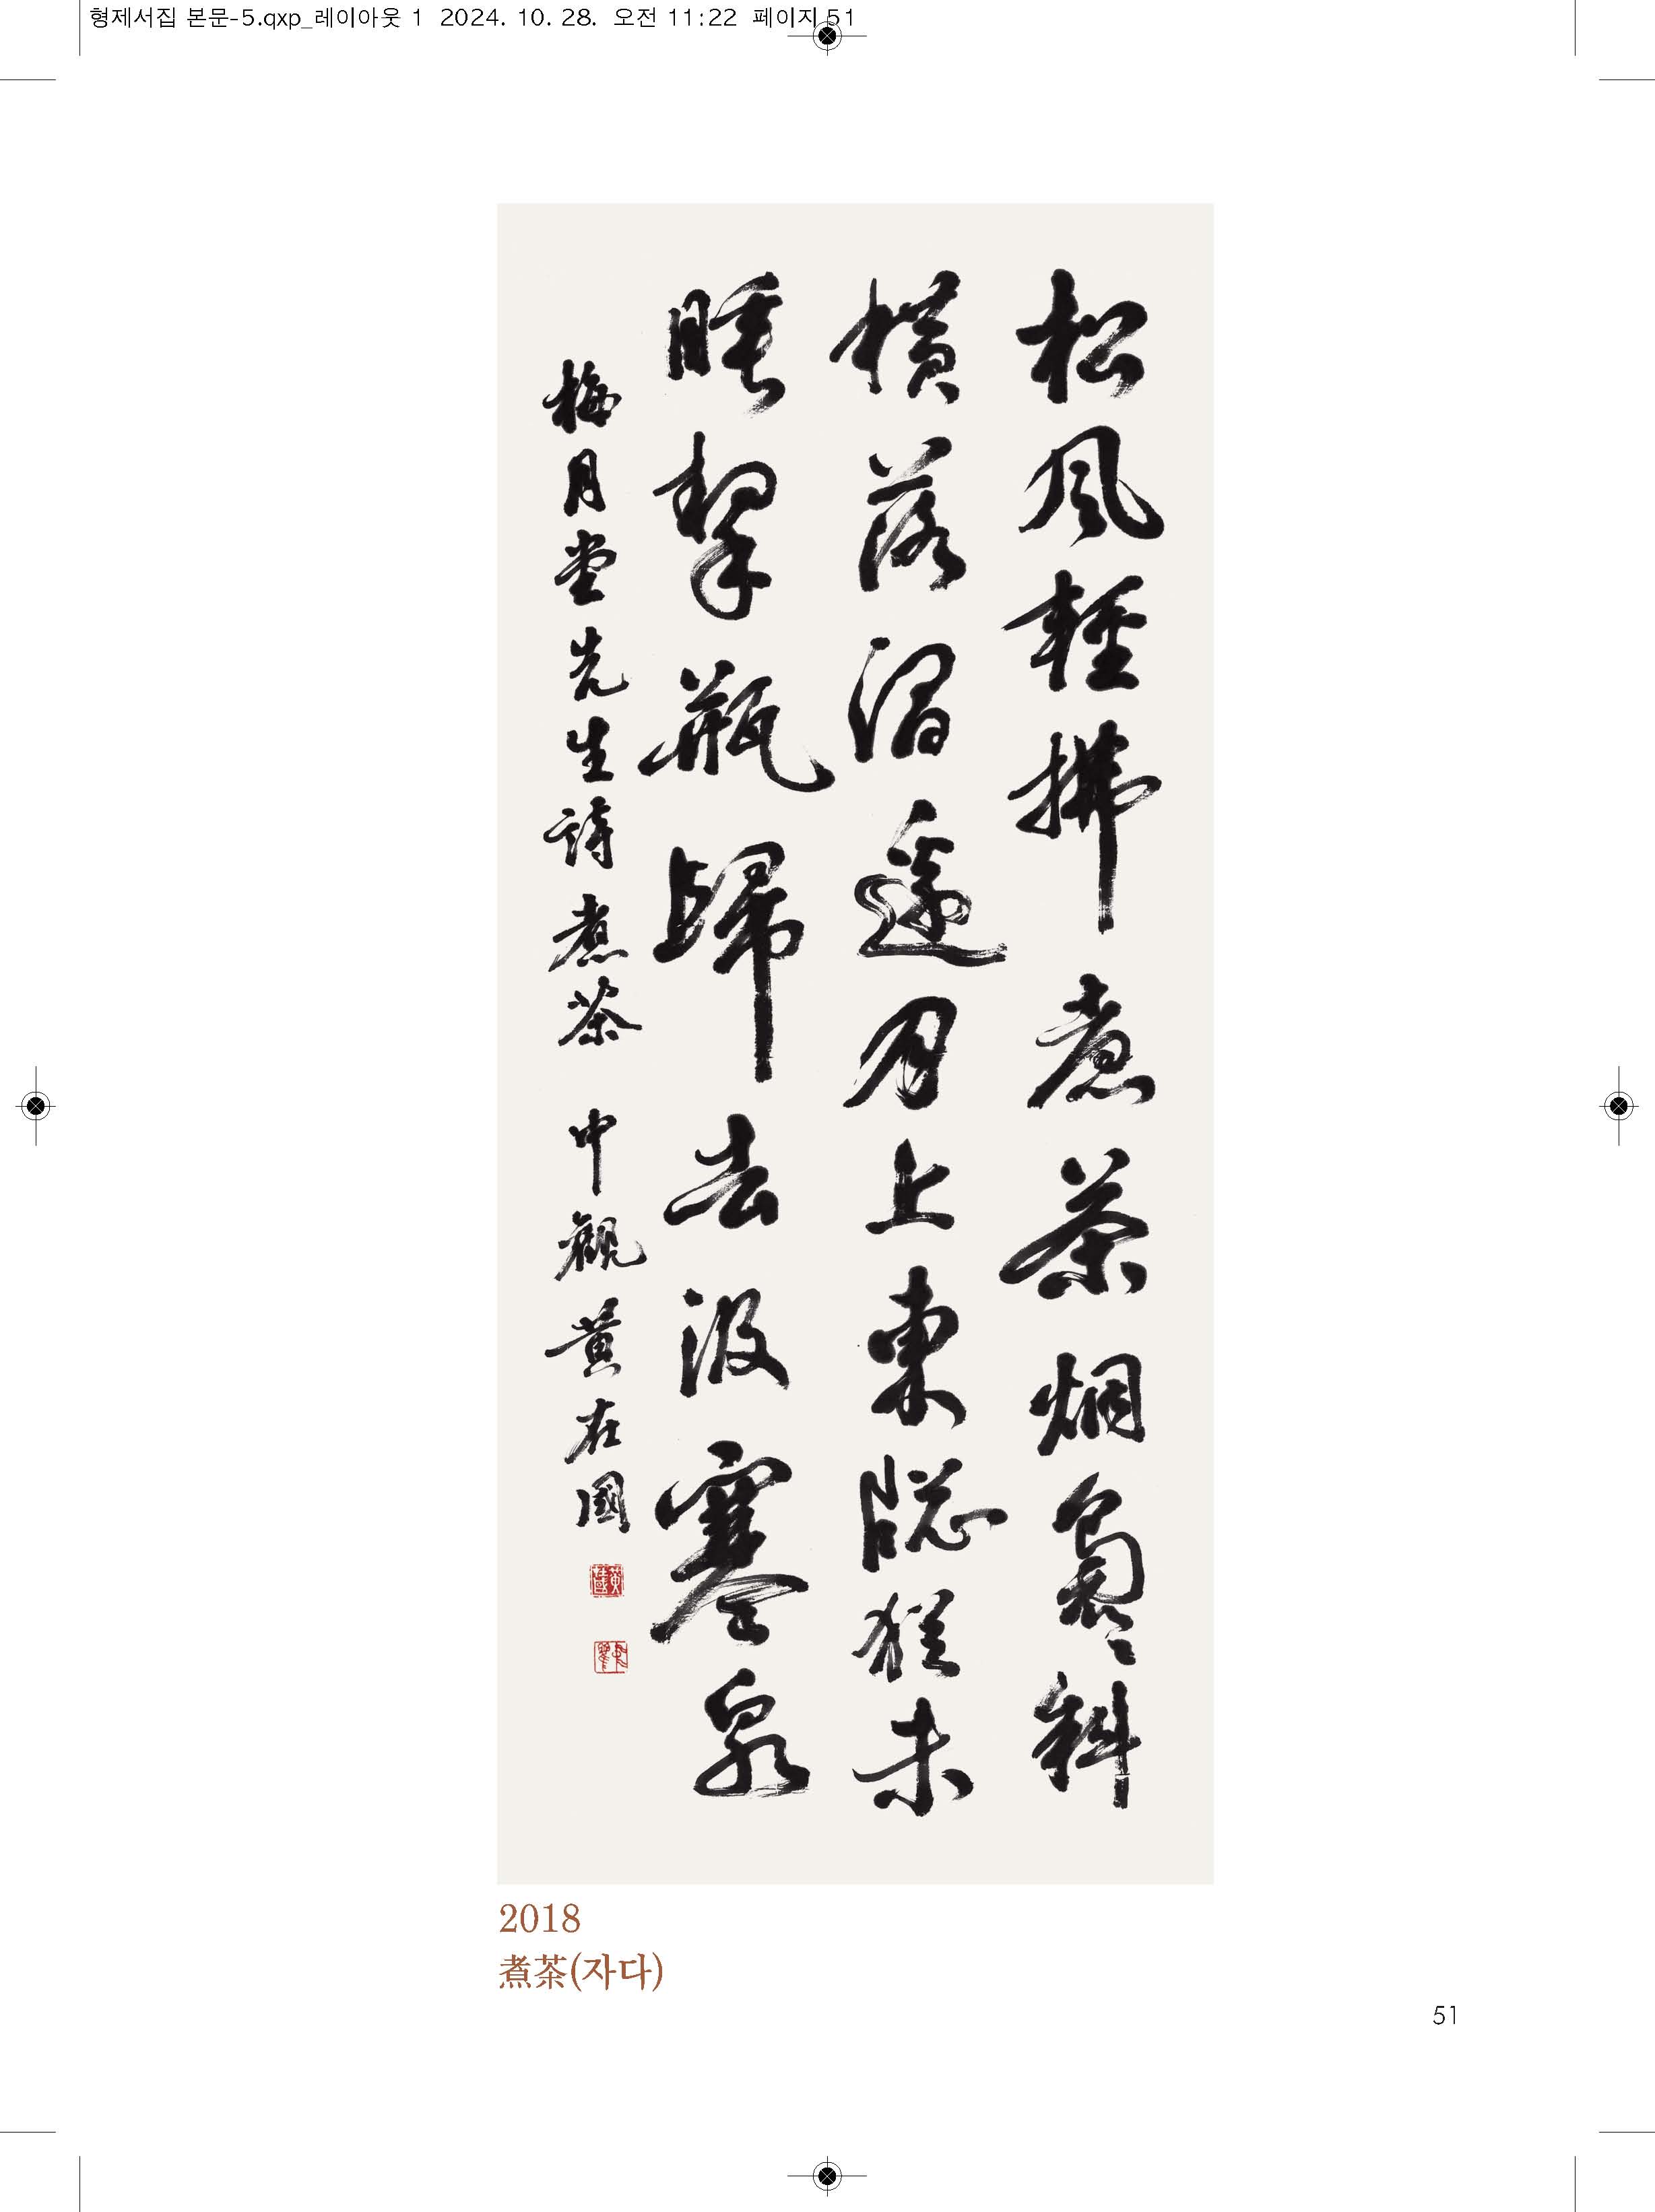 형제서집 본문-5.qxp_레이아웃 1 2024. 10. 28. 오전 11:22 페이지 51
松風輕拂煮茶烟裊裊斜
橫落澗邊月上東牕猶未
睡挈瓶歸去汲寒泉
梅月堂先生詩煮茶 中觀黃在國
2018
煮茶(자다)
51